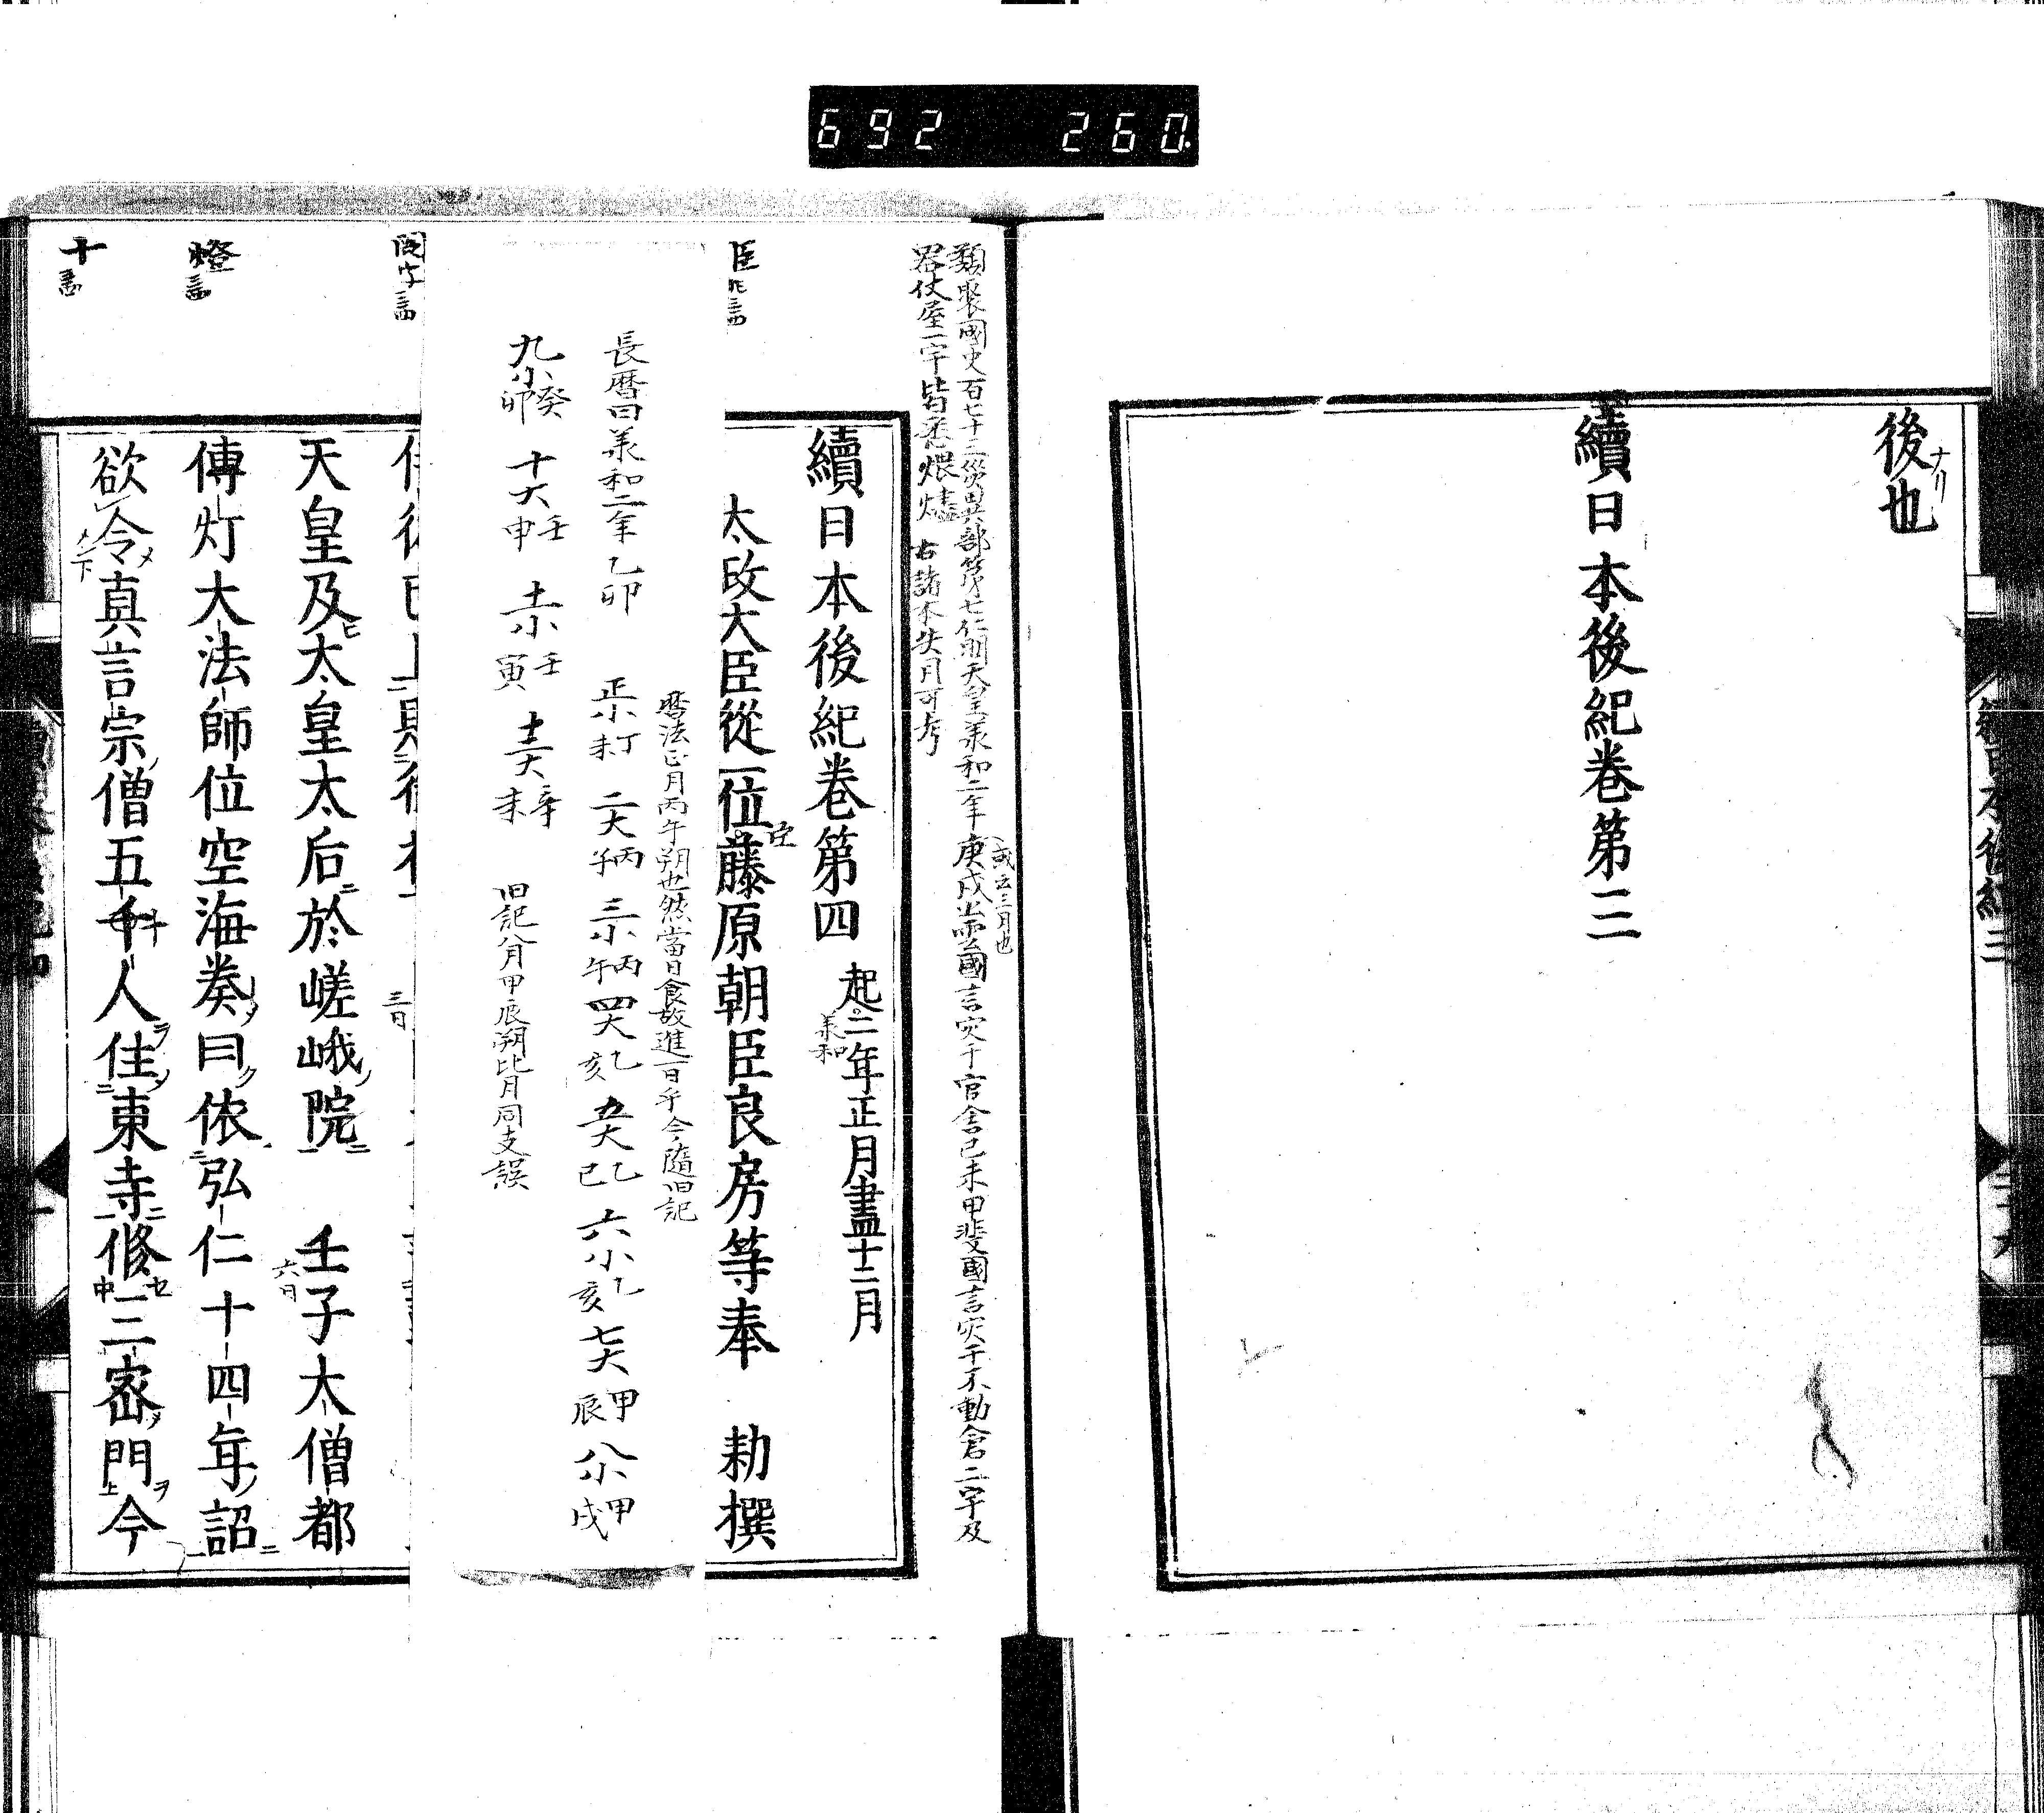 692 260
後也
續日本後紀卷第三
類聚國史百七十三災異部第七仁明天皇承和二年庚戌出雲國言灾于官舎己未甲斐國言灾于不動倉二宇及
或云三月也
器仗屋一宇皆悉煨燼 右諸本失月可考
續日本後紀卷第四 起二年正月盡十二月
承和
太政大臣從一位藤原朝臣良房等奉 勅撰
臣
曆法正月丙午朔也然當日食故進一日乎今隨旧記
長曆曰承和二年乙卯 正小丁未 二大丙子 三小丙午 四大乙亥 五大乙巳 六小乙亥 七大甲辰 八小甲戌
九小癸卯 十大壬申 十一小壬寅 十二大辛未 旧記八月甲辰朔比月同支誤
三日
天皇及太皇太后於嵯峨院 壬子太僧都
六日
傳灯大法師位空海奏曰依弘仁十四年詔
燈
欲令真言宗僧五千人住東寺修三密門今
十